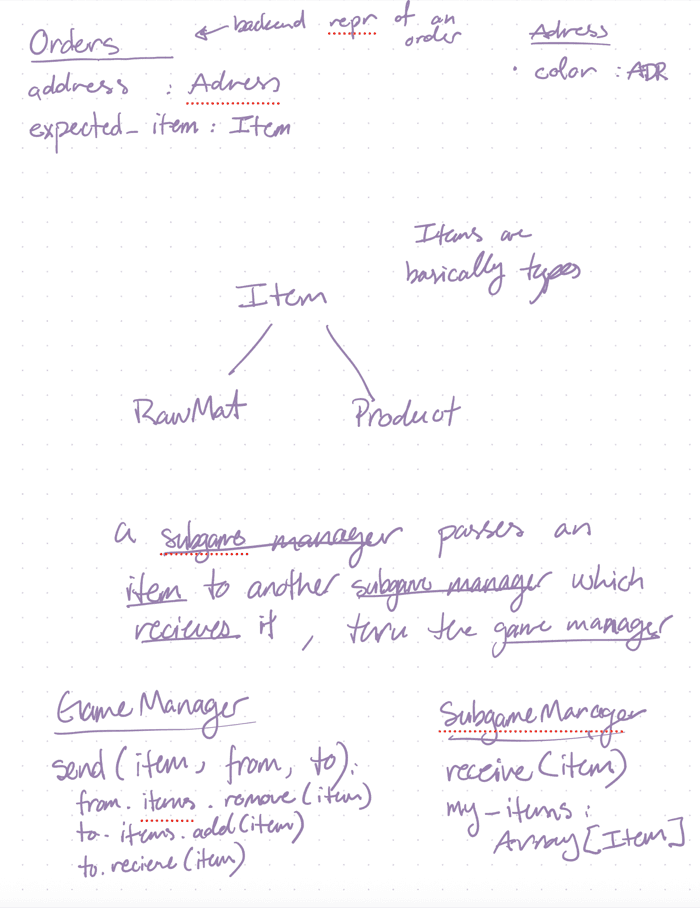 Orders
← backend repr of an
order
address : Adress
expected_item : Item
Adress
• color : ADR
Items are
basically types
Item
RawMat
Product
a subgame manager passes an
item to another subgame manager which
recieves it , thru the game manager
GameManager
send (item, from, to):
from. items. remove (item)
to. items. add (item)
to. recieve (item)
SubgameManager
receive (item)
my-items :
Array [Item]